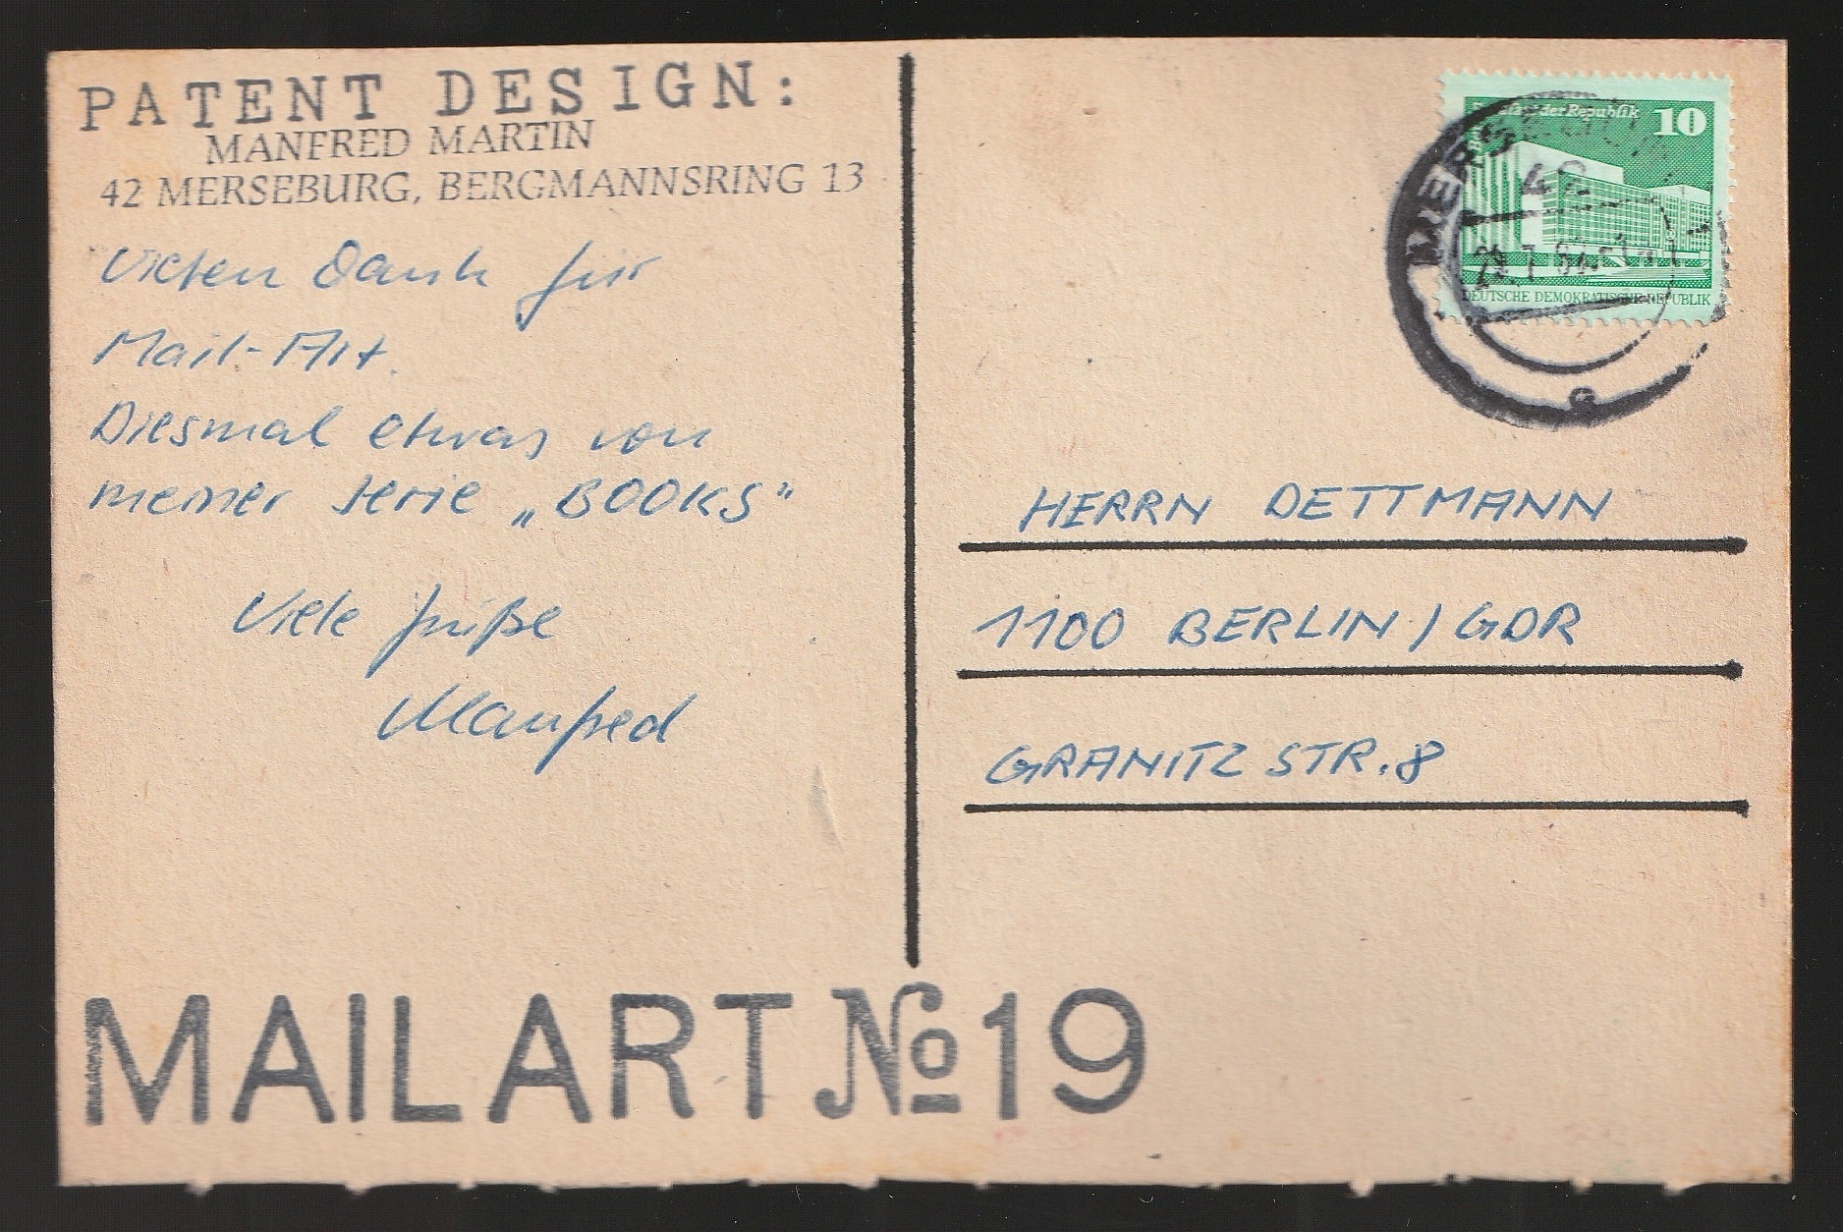 PATENT DESIGN:
MANFRED MARTIN
42 MERSEBURG, BERGMANNSRING 13
Vielen Dank für
Mail-Art.
Diesmal etwas von
meiner Serie „BOOKS"
Viele Grüße
Manfred
MAIL ART No 19
der Republik 10
MERSEBURG
42
DEUTSCHE DEMOKRATISCHE REPUBLIK
HERRN DETTMANN
1100 BERLIN / GDR
GRANITZ STR. 8